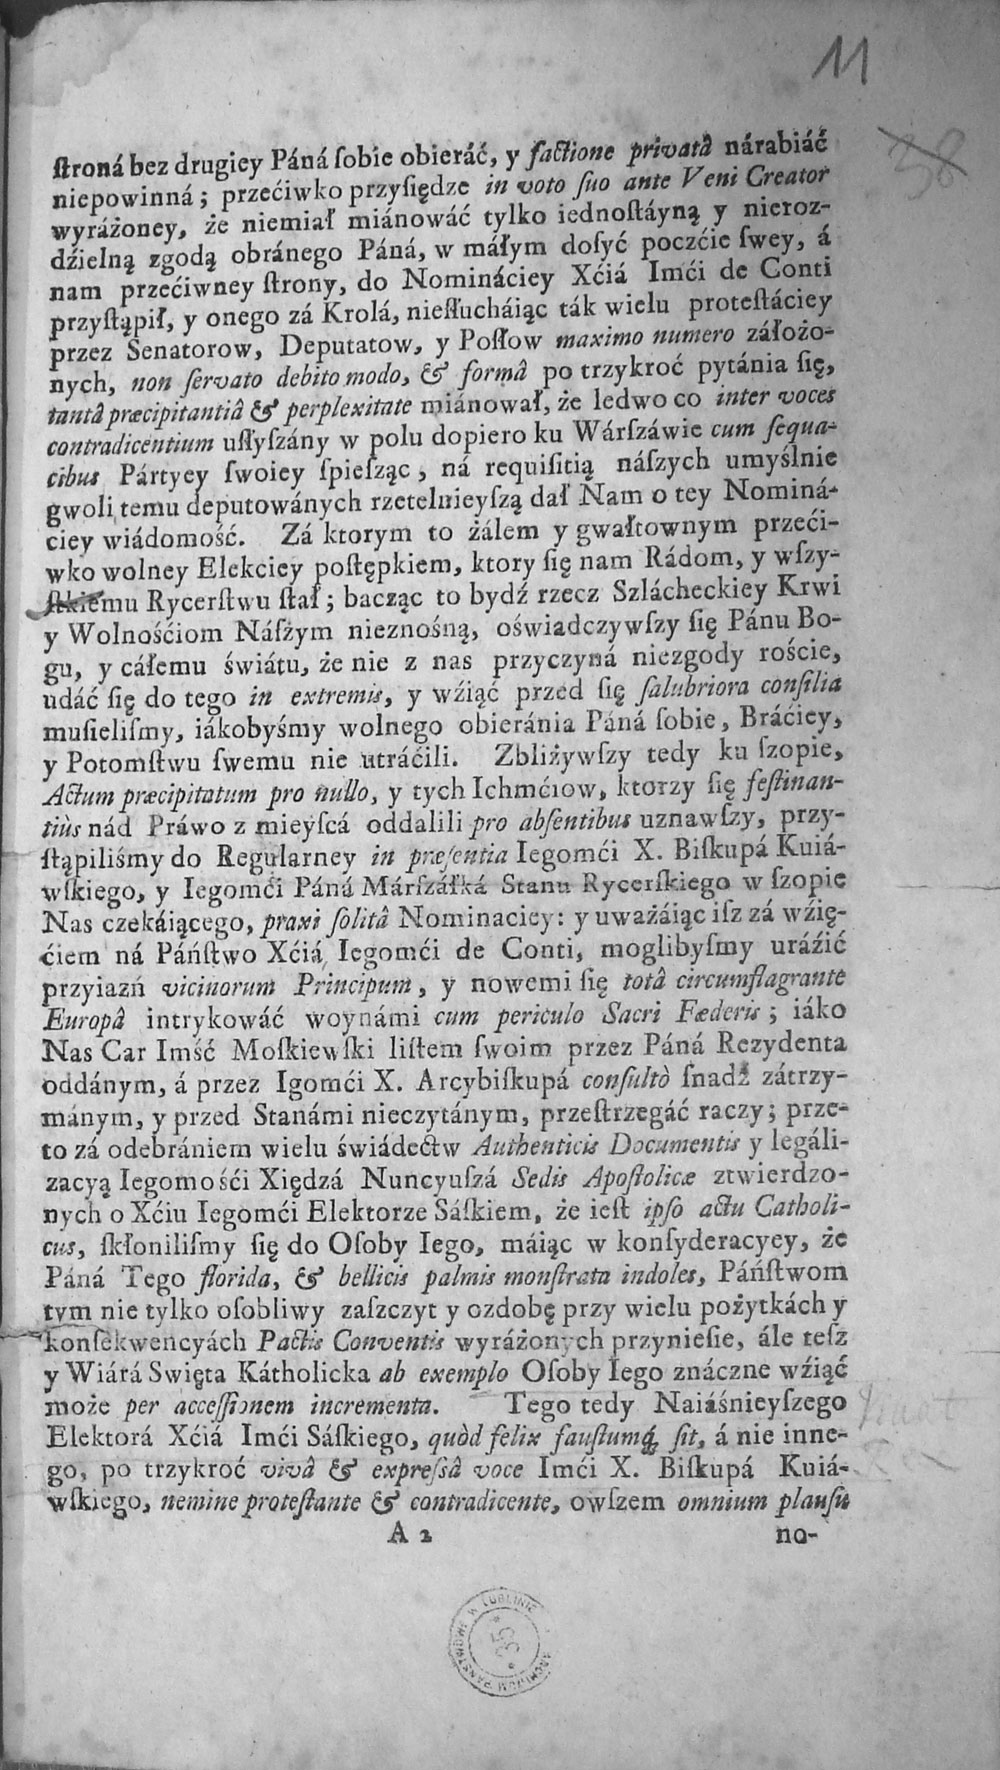 11
38
ſtroná bez drugiey Páná ſobie obieráć, y factione privatâ nárabiáć
niepowinná; przećiwko przyſiędze in voto ſuo ante Veni Creator
wyráżoney, że niemiał miánowáć tylko iednoſtáyną y nieroz-
dźielną zgodą obránego Páná, w máłym doſyć poczćie ſwey, á
nam przećiwney ſtrony, do Nomináciey Xćiá Imći de Conti
przyſtąpił, y onego zá Krolá, nieſłucháiąc ták wielu proteſtáciey
przez Senatorow, Deputatow, y Poſłow maximo numero záłożo-
nych, non ſervato debito modo, & formâ po trzykroć pytánia się,
tantâ præcipitantiâ & perplexitate miánował, że ledwo co inter voces
contradicentium uſłyſzány w polu dopiero ku Wárſzáwie cum ſequa-
cibus Pártyey ſwoiey ſpieſząc, ná requiſitią náſzych umyślnie
gwoli temu deputowánych rzetelnieyſzą dał Nam o tey Nominá-
ciey wiádomość. Zá ktorym to żálem y gwałtownym przeći-
wko wolney Elekciey poſtępkiem, ktory ſię nam Rádom, y wſzy-
ſtkiemu Rycerſtwu ſtał; bacząc to bydź rzecz Szlácheckiey Krwi
y Wolnośćiom Náſżym nieznośną, oświadczywſzy ſię Pánu Bo-
gu, y cáłemu świátu, że nie z nas przyczyná niezgody roście,
udáć ſię do tego in extremis, y wźiąć przed ſię ſalubriora conſilia
muſieliſmy, iákobyśmy wolnego obieránia Páná ſobie, Bráćiey,
y Potomſtwu ſwemu nie utráćili. Zbliżywſzy tedy ku ſzopie,
Actum præcipitatum pro nullo, y tych Ichmćiow, ktorzy ſię feſtinan-
tiùs nád Práwo z mieyſcá oddalili pro abſentibus uznawſzy, przy-
ſtąpiliśmy do Regularney in præſentia Iegomći X. Biſkupá Kuiá-
wſkiego, y Iegomći Páná Márſzáłká Stanu Rycerſkiego w ſzopie
Nas czekáiącego, praxi ſolitâ Nominaciey: y uważáiąc iſz zá wźię-
ćiem ná Páńſtwo Xćiá Iegomći de Conti, moglibyſmy uráźić
przyiaźń vicinorum Principum, y nowemi ſię totâ circumflagrante
Europâ intrykowáć woynámi cum periculo Sacri Fæderis; iáko
Nas Car Imść Moſkiewſki liſtem ſwoim przez Páná Rezydenta
oddánym, á przez Igomći X. Arcybiſkupá conſultò ſnadź zátrzy-
mánym, y przed Stanámi nieczytánym, przeſtrzegáć raczy; prze-
to zá odebrániem wielu świádectw Authenticis Documentis y legáli-
zacyą Iegomośći Xiędzá Nuncyuſzá Sedis Apoſtolicæ ztwierdzo-
nych o Xćiu Iegomći Elektorze Sáſkiem, że ieſt ipſo actu Catholi-
cus, ſkłoniliſmy ſię do Oſoby Iego, máiąc w konſyderacyey, że
Páná Tego florida, & bellicis palmis monſtrata indoles, Páńſtwom
tym nie tylko oſobliwy zaſzczyt y ozdobę przy wielu pożytkách y
konſekwencyách Pactis Conventis wyráżonych przynieſie, ále teſz
y Wiárá Swięta Kátholicka ab exemplo Oſoby Iego znáczne wźiąć
może per acceſſionem incrementa. Tego tedy Naiáśnieyſzego
Elektorá Xćiá Imći Sáſkiego, quòd felix fauſtumq; ſit, á nie inne-
go, po trzykroć vivâ & expreſsâ voce Imći X. Biſkupá Kuiá-
wſkiego, nemine proteſtante & contradicente, owſzem omnium plauſu
A 2 no-
ARCHIWUM PAŃSTWOWE W LUBLINIE
* 35 *